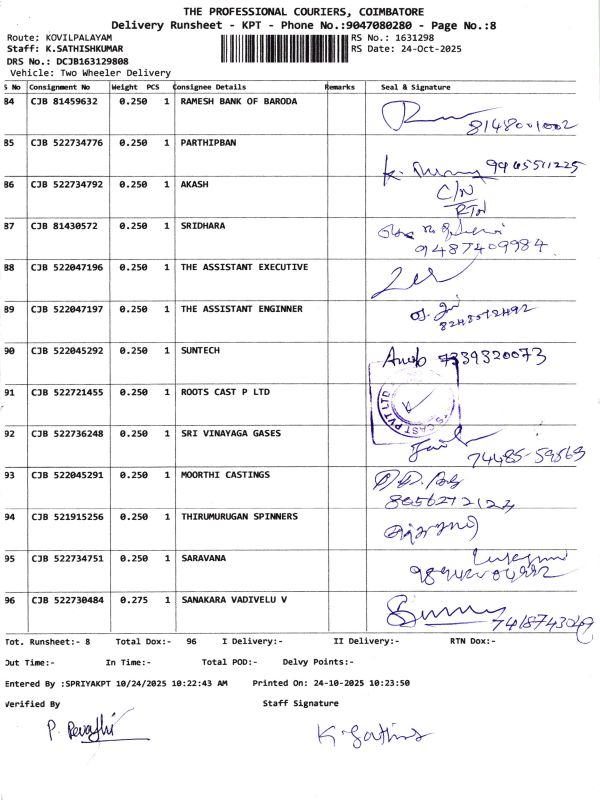 THE PROFESSIONAL COURIERS, COIMBATORE
Delivery Runsheet - KPT - Phone No.:9047080280 - Page No.:8
Route: KOVILPALAYAM RS No.: 1631298
Staff: K.SATHISHKUMAR RS Date: 24-Oct-2025
DRS No.: DCJB163129808
Vehicle: Two Wheeler Delivery
S No Consignment No Weight PCS Consignee Details Remarks Seal & Signature
84 CJB 81459632 0.250 1 RAMESH BANK OF BARODA
8148001002
85 CJB 522734776 0.250 1 PARTHIPBAN
K. 9465511225
86 CJB 522734792 0.250 1 AKASH C/N
RTN
87 CJB 81430572 0.250 1 SRIDHARA
9487409984
88 CJB 522047196 0.250 1 THE ASSISTANT EXECUTIVE
89 CJB 522047197 0.250 1 THE ASSISTANT ENGINNER
90 CJB 522045292 0.250 1 SUNTECH 7339320073
91 CJB 522721455 0.250 1 ROOTS CAST P LTD
CAST PVT LTD
92 CJB 522736248 0.250 1 SRI VINAYAGA GASES
74485-59563
93 CJB 522045291 0.250 1 MOORTHI CASTINGS
94 CJB 521915256 0.250 1 THIRUMURUGAN SPINNERS
95 CJB 522734751 0.250 1 SARAVANA
96 CJB 522730484 0.275 1 SANAKARA VADIVELU V
7418743049
Tot. Runsheet:- 8 Total Dox:- 96 I Delivery:- II Delivery:- RTN Dox:-
Out Time:- In Time:- Total POD:- Delvy Points:-
Entered By :SPRIYAKPT 10/24/2025 10:22:43 AM Printed On: 24-10-2025 10:23:50
Verified By Staff Signature
P. Revathi K. Sathis